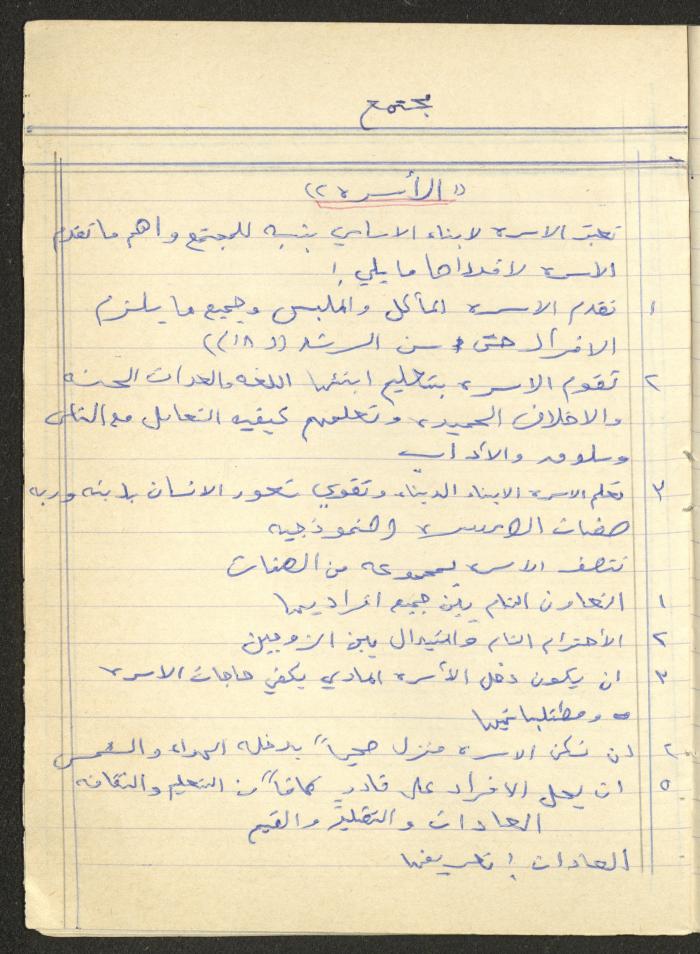 مجتمع
(( الأسره ))
تعتبر الاسره لابناء الاساسي بنسبه للمجتمع واهم ما تقدم
الاسره لافرادها ما يلي :
١ تقدم الاسره المأكل والملبس وجميع ما يلزم
الافراد حتى سن الرشد (( ١٨ ))
٢ تقوم الاسره بتعليم ابنئها اللغه والعدات الحسنه
والاخلاق الحميده وتعلمهم كيفيه التعامل مع الناس
وسلوك والأداب
٣ تعلم الاسره الابناء الديناء وتقوي شعور الانسان بدينه وربه
صفات الاسره النموذجيه
تتصف الاسره بمجموعه من الصفات
١ التعاون التام بين جميع افراديها
٢ الأحترام التام والمتبدال بين الزوجين
٣ ان يكون دخل الأسره المادي يكفي حاجات الاسره
ومطتلباتيها
٤ ان تسكن الاسره منزل صحياً يدخله الهواء والشمس
٥ ان يحل الافراد على قادرٍ كافاً من التعليم والثقافه
العادات والتقليد والقيم
العادات : تعريفها